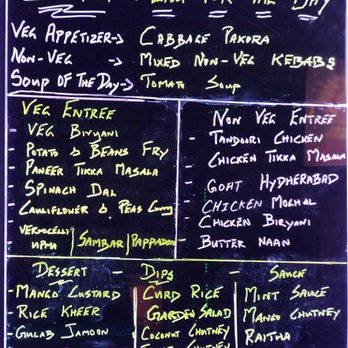 FOR THE DAY
VEG APPETIZER-> CABBAGE PAKORA
NON-VEG -> MIXED NON-VEG KEBABS
SOUP OF THE DAY-> TOMATO SOUP
VEG ENTREE
- VEG BIRYANI
- POTATO & BEANS FRY
- PANEER TIKKA MASALA
- SPINACH DAL
- CAULIFLOWER & PEAS CURRY
VERMICELLI UPMA | SAMBAR | PAPPADAM
NON VEG ENTREE
- TANDOORI CHICKEN
CHICKEN TIKKA MASALA
- GOAT HYDHERABAD
- CHICKEN MOGHAL
- CHICKEN BIRYANI
- BUTTER NAAN
DESSERT - DIPS - SAUCE
- MANGO CUSTARD
- RICE KHEER
- GULAB JAMOON
CURD RICE
GARDEN SALAD
COCONUT CHUTNEY
CHUTNEY
MINT SAUCE
MANGO CHUTNEY
RAITHA